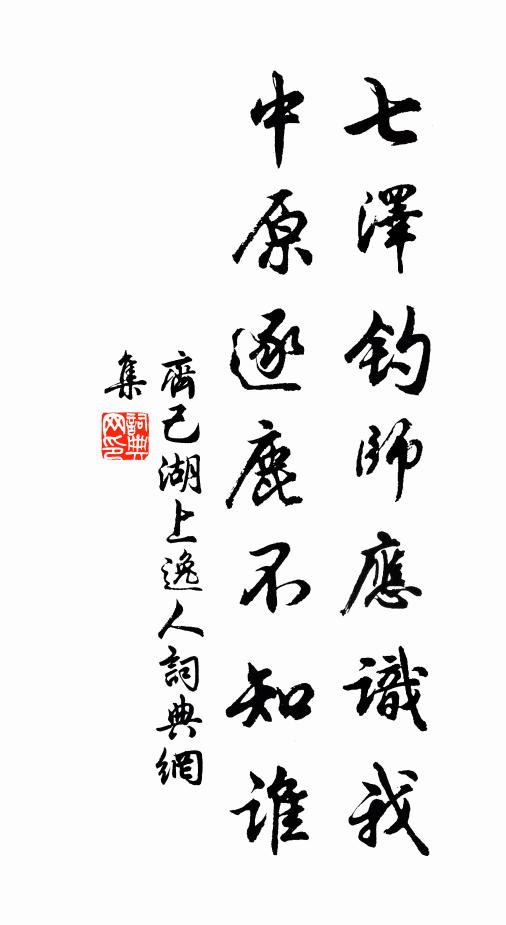 七澤釣師應識我
中原逐鹿不知誰
齊己湖上逸人詞典網
集
詞典網印